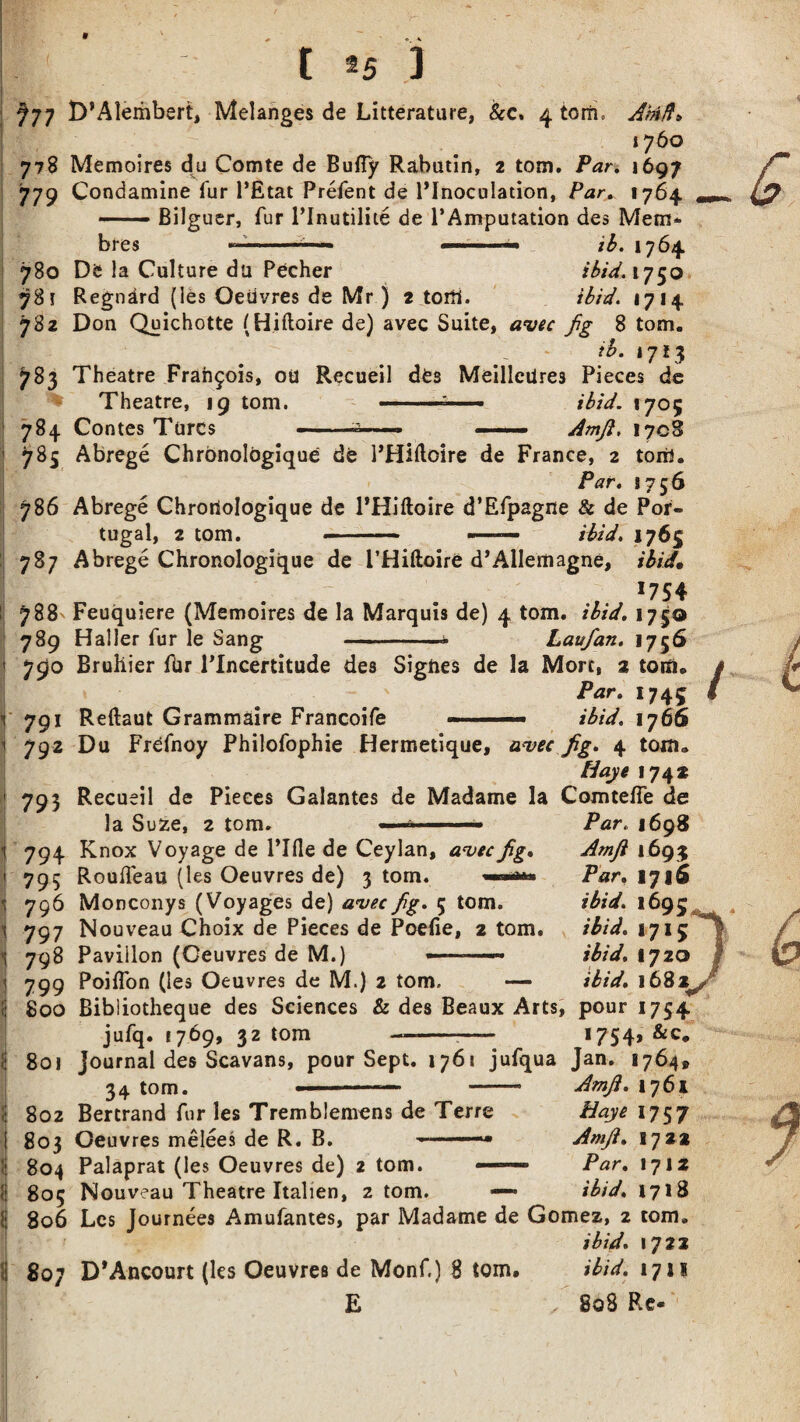 [ 25 ]
777 D'Alembert, Melanges de Litterature, &c. 4 tom. Amſt.
1760
778 Memoires du Comte de Buſſy Rabutin, 2 tom. Par. 1697
779 Condamine ſur l'Etat Préſent de l'Inoculation, Par. 1764
—— Bilguer, ſur l'Inutilité de l'Amputation des Mem-
bres —— —— ib. 1764
780 De la Culture du Pecher ibid. 1750
781 Regnard (les Oeuvres de Mr ) 2 tom. ibid. 1714
782 Don Quichotte (Hiſtoire de) avec Suite, avec fig 8 tom.
ib. 1713
783 Theatre François, ou Recueil des Meilleures Pieces de
Theatre, 19 tom. —— ibid. 1705
784 Contes Turcs —— —— Amſt. 1708
785 Abregé Chronologique de l'Hiſtoire de France, 2 tom.
Par. 1756
786 Abregé Chronologique de l'Hiſtoire d'Eſpagne & de Por-
tugal, 2 tom. —— —— ibid. 1765
787 Abregé Chronologique de l'Hiſtoire d'Allemagne, ibid.
1754
788 Feuquiere (Memoires de la Marquis de) 4 tom. ibid. 1750
789 Haller ſur le Sang —— Lauſan. 1756
790 Bruhier ſur l'Incertitude des Signes de la Mort, 2 tom.
Par. 1745
791 Reſtaut Grammaire Francoiſe —— ibid. 1766
792 Du Freſnoy Philoſophie Hermetique, avec fig. 4 tom.
Haye 1742
793 Recueil de Pieces Galantes de Madame la Comteſſe de
la Suze, 2 tom. —— Par. 1698
794 Knox Voyage de l'Iſle de Ceylan, avec fig. Amſt 1693
795 Rouſſeau (les Oeuvres de) 3 tom. —— Par. 1716
796 Monconys (Voyages de) avec fig. 5 tom. ibid. 1695
797 Nouveau Choix de Pieces de Poeſie, 2 tom. ibid. 1715
798 Pavillon (Oeuvres de M.) —— ibid. 1720
799 Poiſſon (les Oeuvres de M.) 2 tom. — ibid. 1682
800 Bibliotheque des Sciences & des Beaux Arts, pour 1754
juſq. 1769, 32 tom —— 1754, &c.
801 Journal des Scavans, pour Sept. 1761 juſqua Jan. 1764,
34 tom. —— —— Amſt. 1761
802 Bertrand ſur les Tremblemens de Terre Haye 1757
803 Oeuvres mêlées de R. B. —— Amſt. 1722
804 Palaprat (les Oeuvres de) 2 tom. —— Par. 1712
805 Nouveau Theatre Italien, 2 tom. — ibid. 1718
806 Les Journées Amuſantes, par Madame de Gomez, 2 tom.
ibid. 1722
807 D'Ancourt (les Oeuvres de Monſ.) 8 tom. ibid. 1711
E 808 Re-